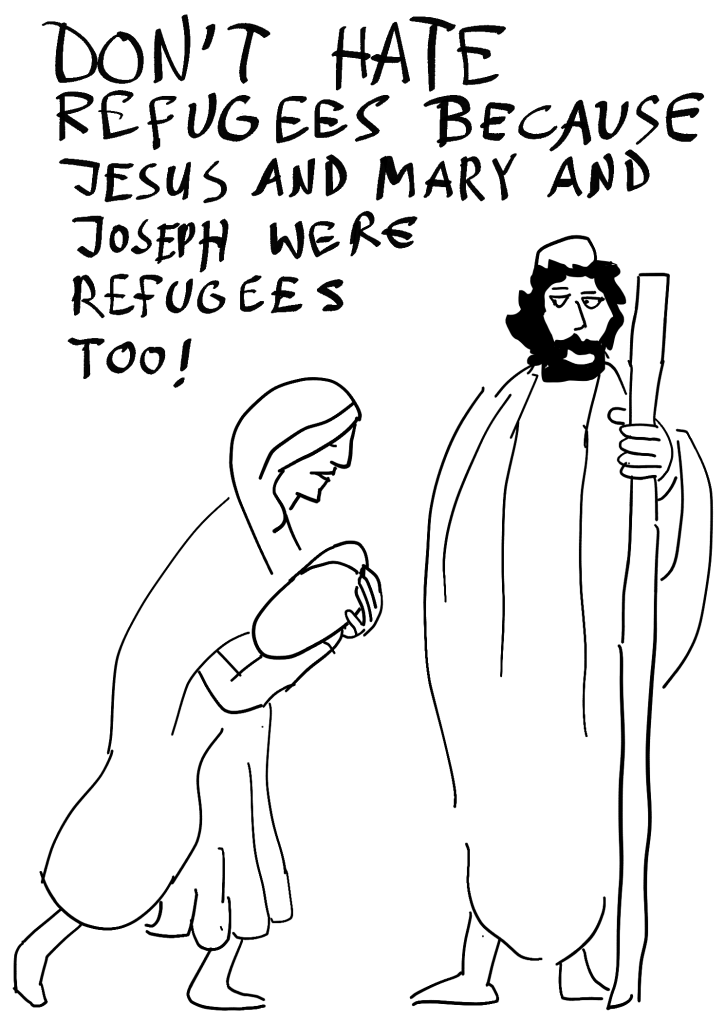 DON'T HATE
REFUGEES BECAUSE
JESUS AND MARY AND
JOSEPH WERE
REFUGEES
TOO!